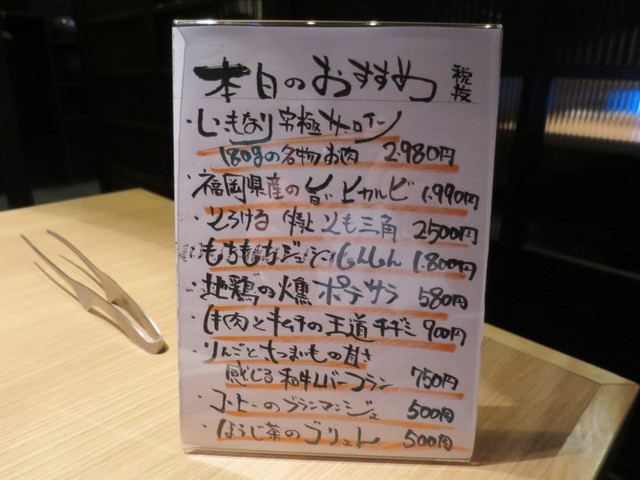 本日のおすすめ 税抜
・いきなり究極サーロイン
180gの名物お肉 2.980円
・福岡県産の旨ピカルビ 1.990円
・とろける 特上 とも三角 2500円
・もちもちジューシー 1.800円
・地鶏の燻ポテサラ 580円
・牛肉とキムチの王道チヂミ 900円
・りんごとさつまいもの甘さ
感じる和牛レバーブラン 750円
・コーヒーのブランマンジェ 500円
・ほうじ茶のブリュレ 500円